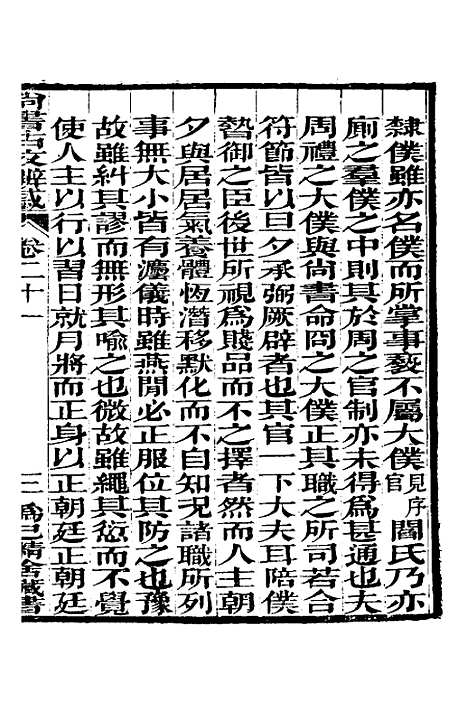 隸僕雖亦名僕而所掌事褻不屬大僕見序官閻氏乃亦
廁之羣僕之中則其於周之官制亦未得為甚通也夫
周禮之大僕與尚書命冏之大僕正其職之所司若合
符節皆以旦夕承弼厥辟者也其官一下大夫耳陪僕
暬御之臣後世所視為賤品而不之擇者然而人主朝
夕與居居氣養體恆潛移默化而不自知况諸職所列
事無大小皆有灋儀時雖燕閒必正服位其防之也豫
故雖糾其謬而無形其喻之也微故雖繩其愆而不覺
使人主以行以習日就月將而正身以正朝廷正朝廷
尚書古文辨惑 卷二十一 三 為己精舍藏書